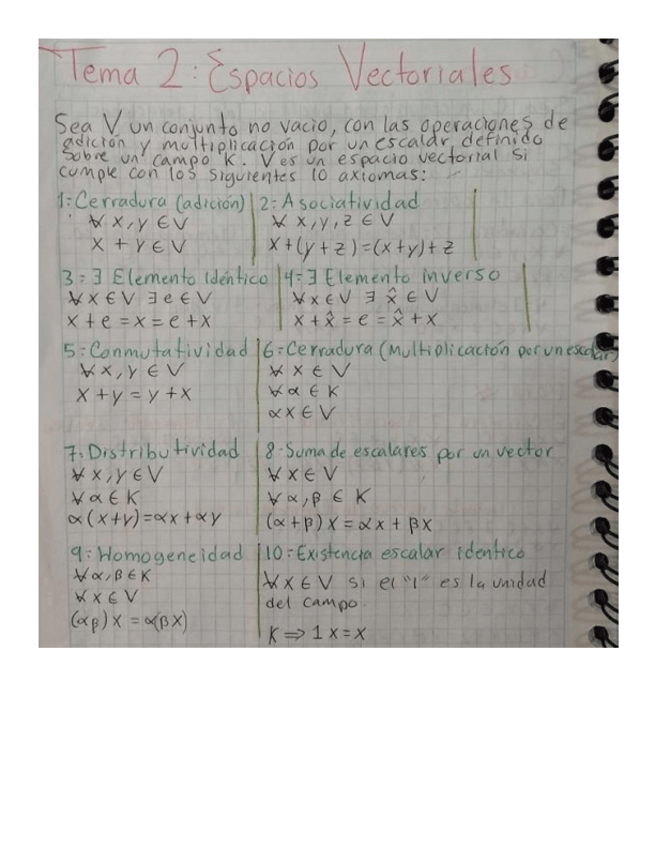 Tema 2: Espacios Vectoriales
Sea V un conjunto no vacio, con las operaciones de
adición y multiplicación por un escalar definido
sobre un campo K. V es un espacio vectorial si
cumple con los siguientes 10 axiomas:
1=Cerradura (adición)
∀ x,y ∈ V
x + y ∈ V
2=Asociatividad
∀ x,y,z ∈ V
x+(y+z)=(x+y)+z
3=∃ Elemento Identico
∀ x ∈ V ∃ e ∈ V
x + e = x = e + x
4=∃ Elemento inverso
∀ x ∈ V ∃ x̂ ∈ V
x + x̂ = e = x̂ + x
5=Conmutatividad
∀ x,y ∈ V
x + y = y + x
6=Cerradura (Multiplicación por un escalar)
∀ x ∈ V
∀ α ∈ K
αx ∈ V
7=Distributividad
∀ x,y ∈ V
∀ α ∈ K
α(x+y)=αx+αy
8-Suma de escalares por un vector
∀ x ∈ V
∀ α,β ∈ K
(α+β)x = αx + βx
9=Homogeneidad
∀ α,β ∈ K
∀ x ∈ V
(αβ)x = α(βx)
10=Existencia escalar identico
∀ x ∈ V si el "1" es la unidad
del campo.
K ⇒ 1x = x